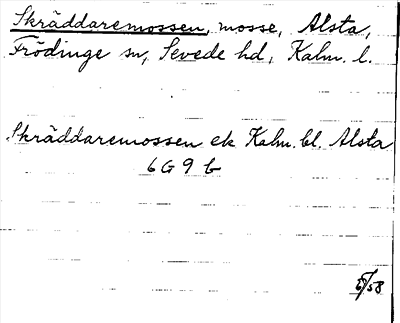 Skräddaremossen, mosse, Alsta,
Frödinge sn, Sevede hd, Kalm. l.
Skräddaremossen ek Kalm. bl. Alsta
6 G 9 b
/58